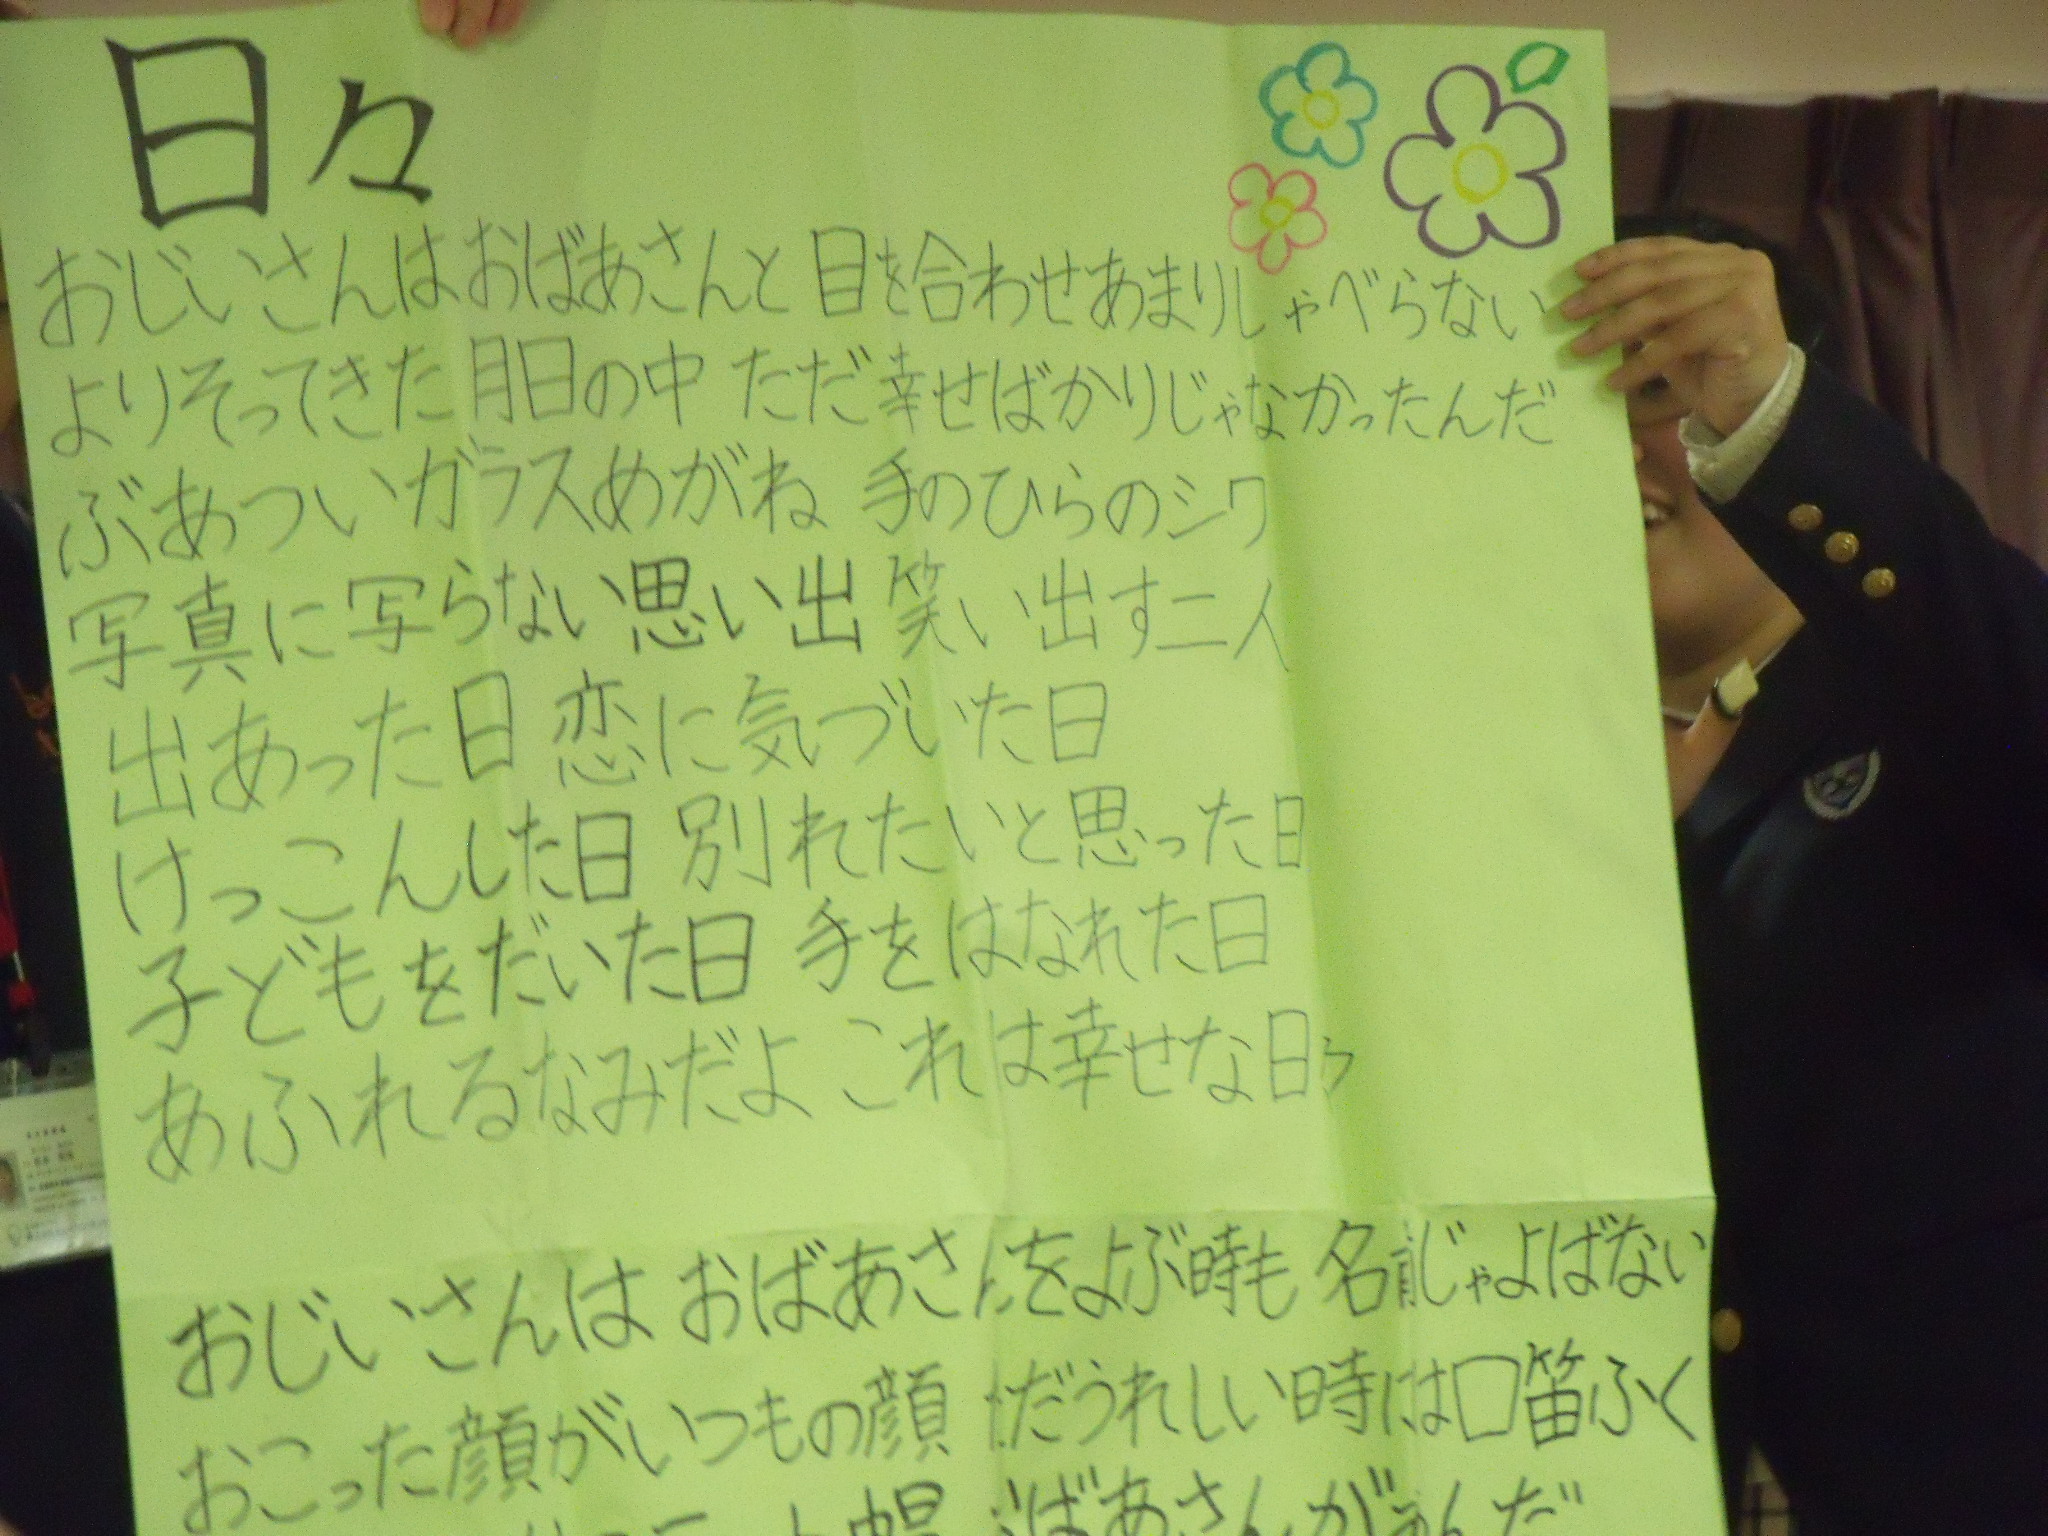 日々
おじいさんはおばあさんと 目を合わせあまりしゃべらない
よりそってきた月日の中 ただ幸せばかりじゃなかったんだ
ぶあついガラスめがね 手のひらのシワ
写真に写らない思い出 笑い出す二人
出あった日 恋に気づいた日
けっこんした日 別れたいと思った日
子どもをだいた日 手をはなれた日
あふれるなみだよ これは幸せな日々
おじいさんは おばあさんをよぶ時も 名前じゃよばない
おこった顔がいつもの顔 ただうれしい時には口笛ふく
帽 おばあさんがあんだ